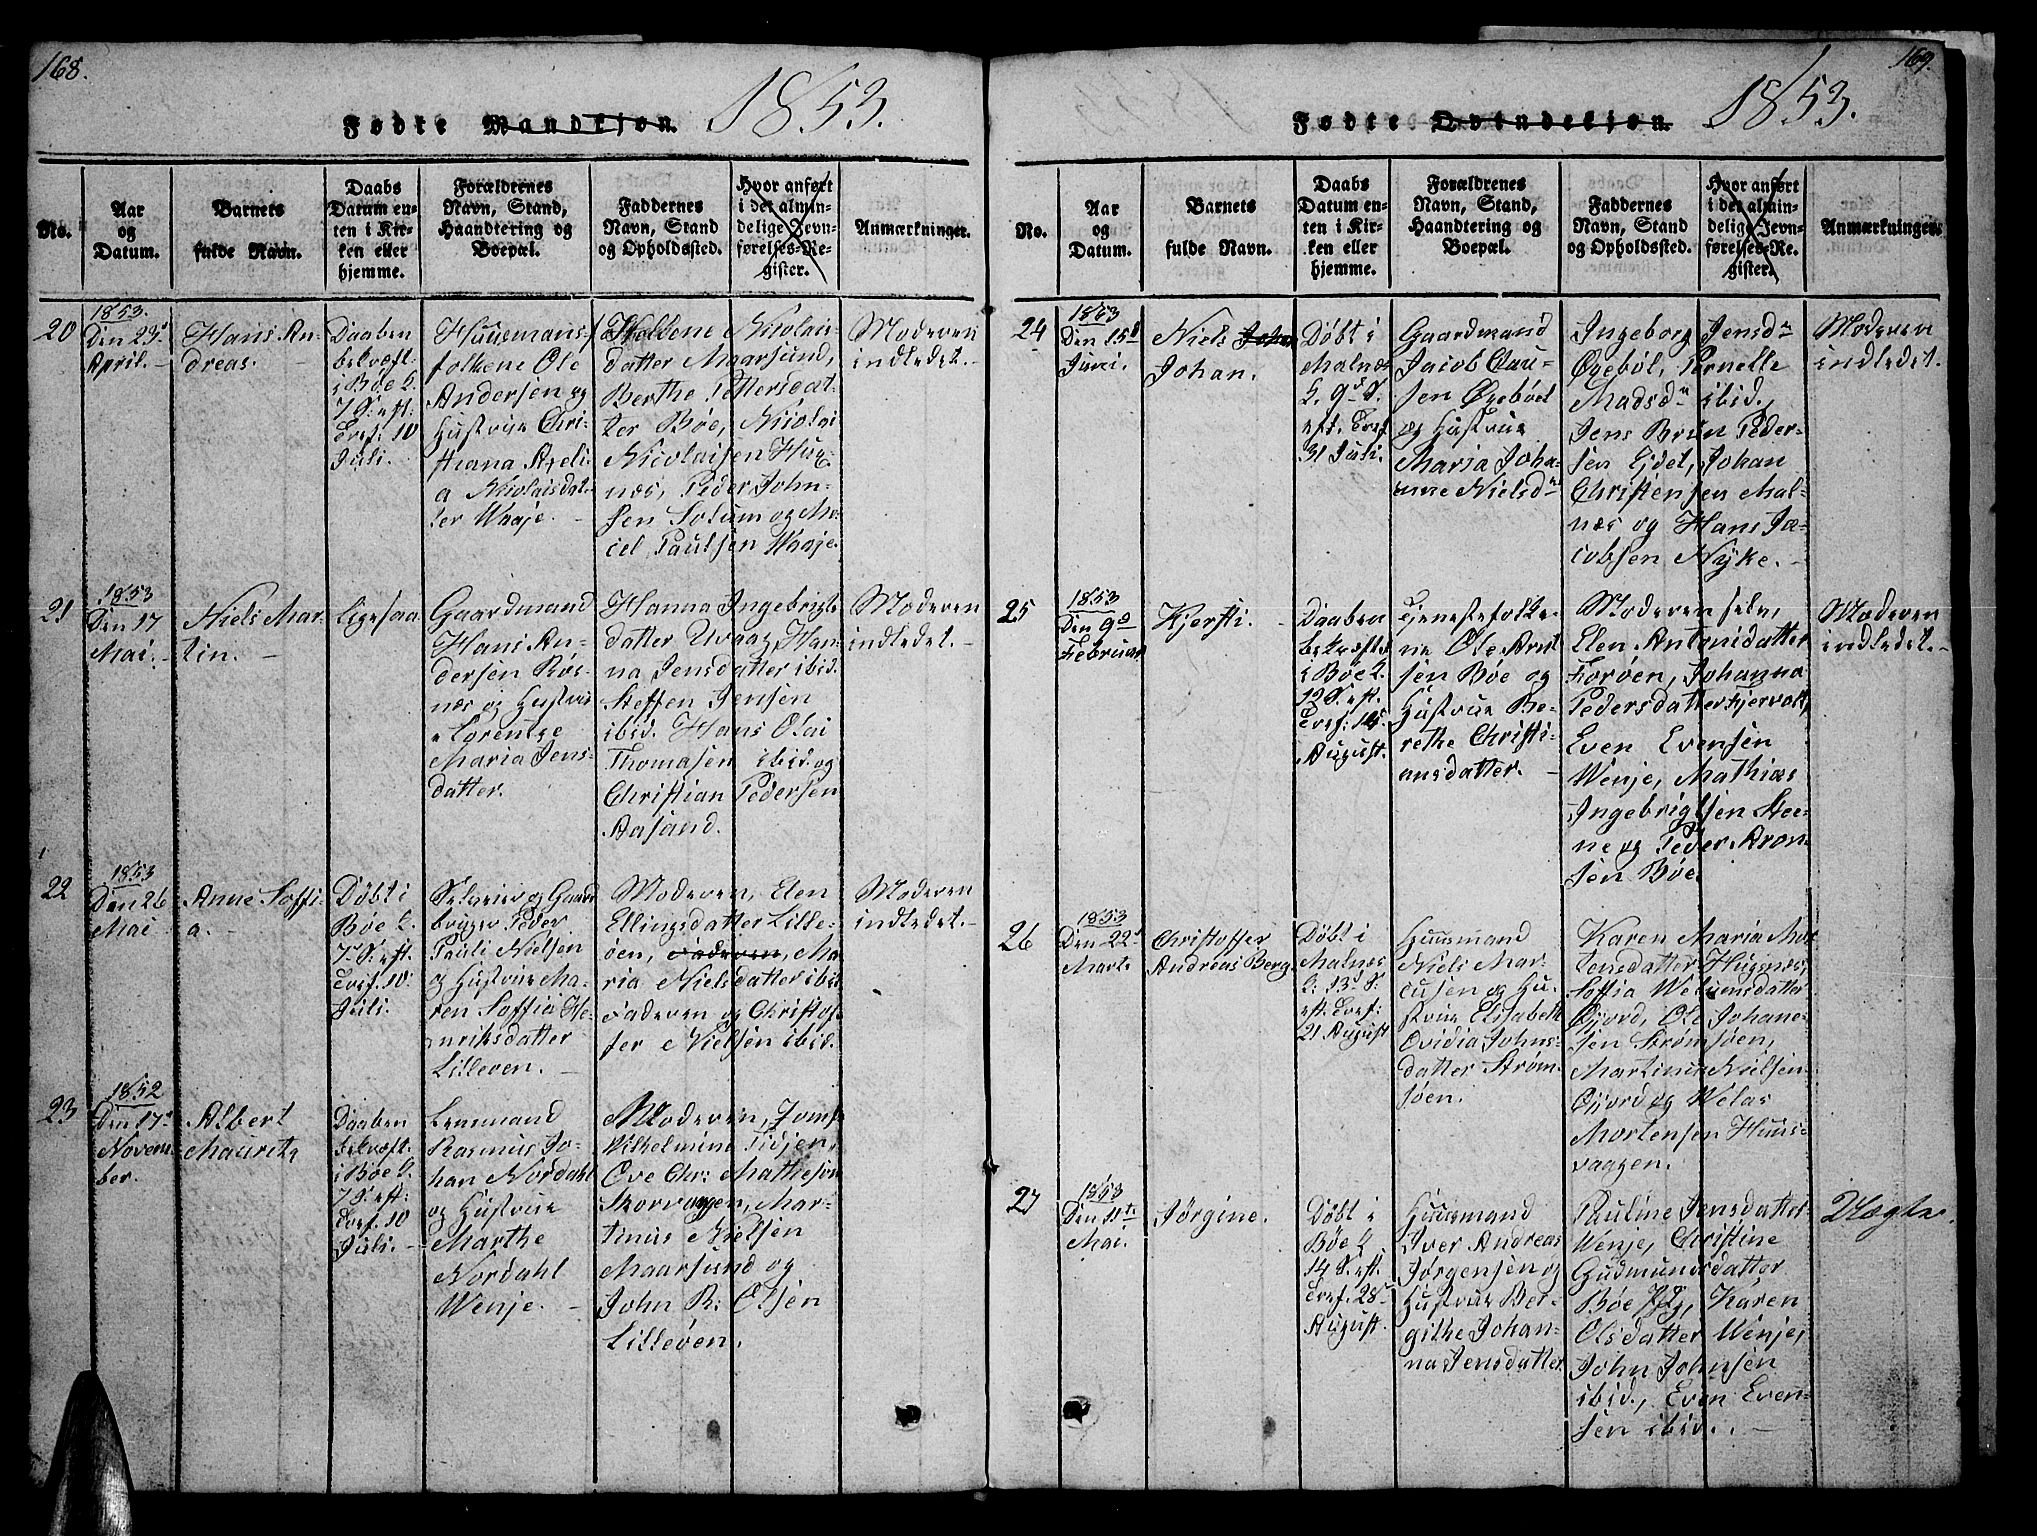 168.
Fødte Mandkjøn. 1853.
No.
Aar
og
Datum.
Barnets
fulde Navn.
Daabs
Datum en-
ten i Kir-
ken eller
hjemme.
Forældrenes
Navn, Stand,
Haandtering og
Boepæl.
Faddernes
Navn, Stand
og Opholdssted.
Hvor anført
i det almin-
delige Jevn-
førelses-Re-
gister.
Anmærkninger.
20
1853.
Den 23d
April.
Hans An-
dreas.
Daaben
bekræft.
i Bøe K.
7 S. eft.
Tref. 10
Juli.
Huusmans-
folkene Ole
Andersen og
Hustrue Chri-
stiana Axeli-
a Nicolaisdat-
ter Waaje.
Nicolai-
datter Marsund,
Berthe Pettersdat-
ter Bøe, Nicolai
Nicolaisen Hug-
næs, Peder John-
sen Solum og Mi-
ciel Paulsen Waaje.
Moderen
indledet.
21
1853
Den 17
Mai.
Niels Mar-
tin.
ligesaa
Gaardmand
Hans An-
dersen Røs-
næs og Hustrue
Lorentze
Maria Jens-
datter.
Hanna Ingebrigts
datter Uvaag, Han-
na Jensdatter ibid.
Steffen Jensen
ibid. Hans Olai
Thomasen ibid. og
Christian Pedersen
Aasand.
Moderen
indledet.
22
1853
Den 26
Mai
Anne Soffi-
a.
Døbt i
Bøe K.
7 S. eft.
Tref. 10
Juli.
Selveier og Gaard
bruger Peder
Pauli Nielsen
og Hustrue Ma-
ren Soffia He-
nriksdatter
Lilleøen.
Moderen, Elen
Ellingsdatter Lille-
øen, Faderen, Ma-
ria Nielsdatter ibid.
Faderen og Christof-
fer Nielsen ibid.
Moderen
indledet.
23
1852
Den 17d
Novem-
ber.
Albert
Mauritz
Daaben
bekræft.
i Bøe K.
7 S. eft.
Tref. 10
Juli.
Lensmand
Rasmus Jo-
han Nordahl
og Hustrue
Marthe
Nordahl
Wenje.
Moderen, Jomf.
Wilhelmine Tidjen,
Ove Chr: Mathesen
Skorvagen, Mar-
tinus Nielsen
Maarsund og
John R: Olsen
Lilleøen.
169.
Fødte Qvindekjøn. 1853.
No.
Aar
og
Datum.
Barnets
fulde Navn.
Daabs
Datum en-
ten i Kir-
ken eller
hjemme.
Forældrenes
Navn, Stand,
Haandtering og
Boepæl.
Faddernes
Navn, Stand
og Opholdssted.
Hvor anført
i det almin-
delige Jevn-
førelses-Re-
gister.
Anmærkninger.
24
1853
Den 15d
Juni.
Niels Johan
Johan.
Døbt i
Malnæs
K. 9d S.
eft. Tref
31 Juli.
Gaardmand
Jacob Clau-
sen Øxebøl
og Hustrue
Maria Joha-
nne Nielsd
Ingeborg Jensd
Øxebøl, Pernelle
Madsd ibid.,
Jens Brun Peder-
sen Eidet, Johan
Christensen Mal-
næs og Hans Ja-
cobsen Nyke.
Moderen
indledet.
25
1853
Den 9d
Februar
Kjersti.
Daaben
bekræftet
i Bøe K.
12 S. eft.
Tref: 14
August.
Tjenestefolke-
ne Ole Arnt
sen Bøe og
Hustrue Be-
rethe Christi-
ansdatter.
Moderen selv,
Elen Antonidatter
Forøen, Johanna
Pedersdatter Fjervolt,
Even Evensen
Wenje, Mathias
Ingebrigtsen Stee-
ne og Peder Aron-
sen Bøe.
Moderen
indledet.
26
1853
Den 22d
Marts
Christoffer
Andreas Berg.
Døbt i
Malnes
K: 13d S:
eft. Tref:
21 August
Huusmand
Niels Mar-
cusen og Hu-
strue Elisabeth
Ovidia Johns-
datter Strøm-
søen.
Karen Maria Mor
tensdatter Hugnes,
Soffia Welumsdatter
Gjord, Ole Johane-
sen Strømsøen,
Martinus Nielsen
Gjord og Welas
Mortensen Huus-
vaagen.
27
1853
Den 11te
Mai.
Jørgine.
Døbt i
Bøe K
14 S. eft.
Tref. 28
August.
Huusmand
Iver Andreas
Jørgensen og
Hustrue Ber-
githe Johan-
na Jensdatter
Pauline Jensdatter
Wenje, Christine
Gudmundsdatter
Bøe Pg, Karen
Olsdatter Wenje,
John Johnsen
ibid., Even Even-
sen ibid.
Uægte.